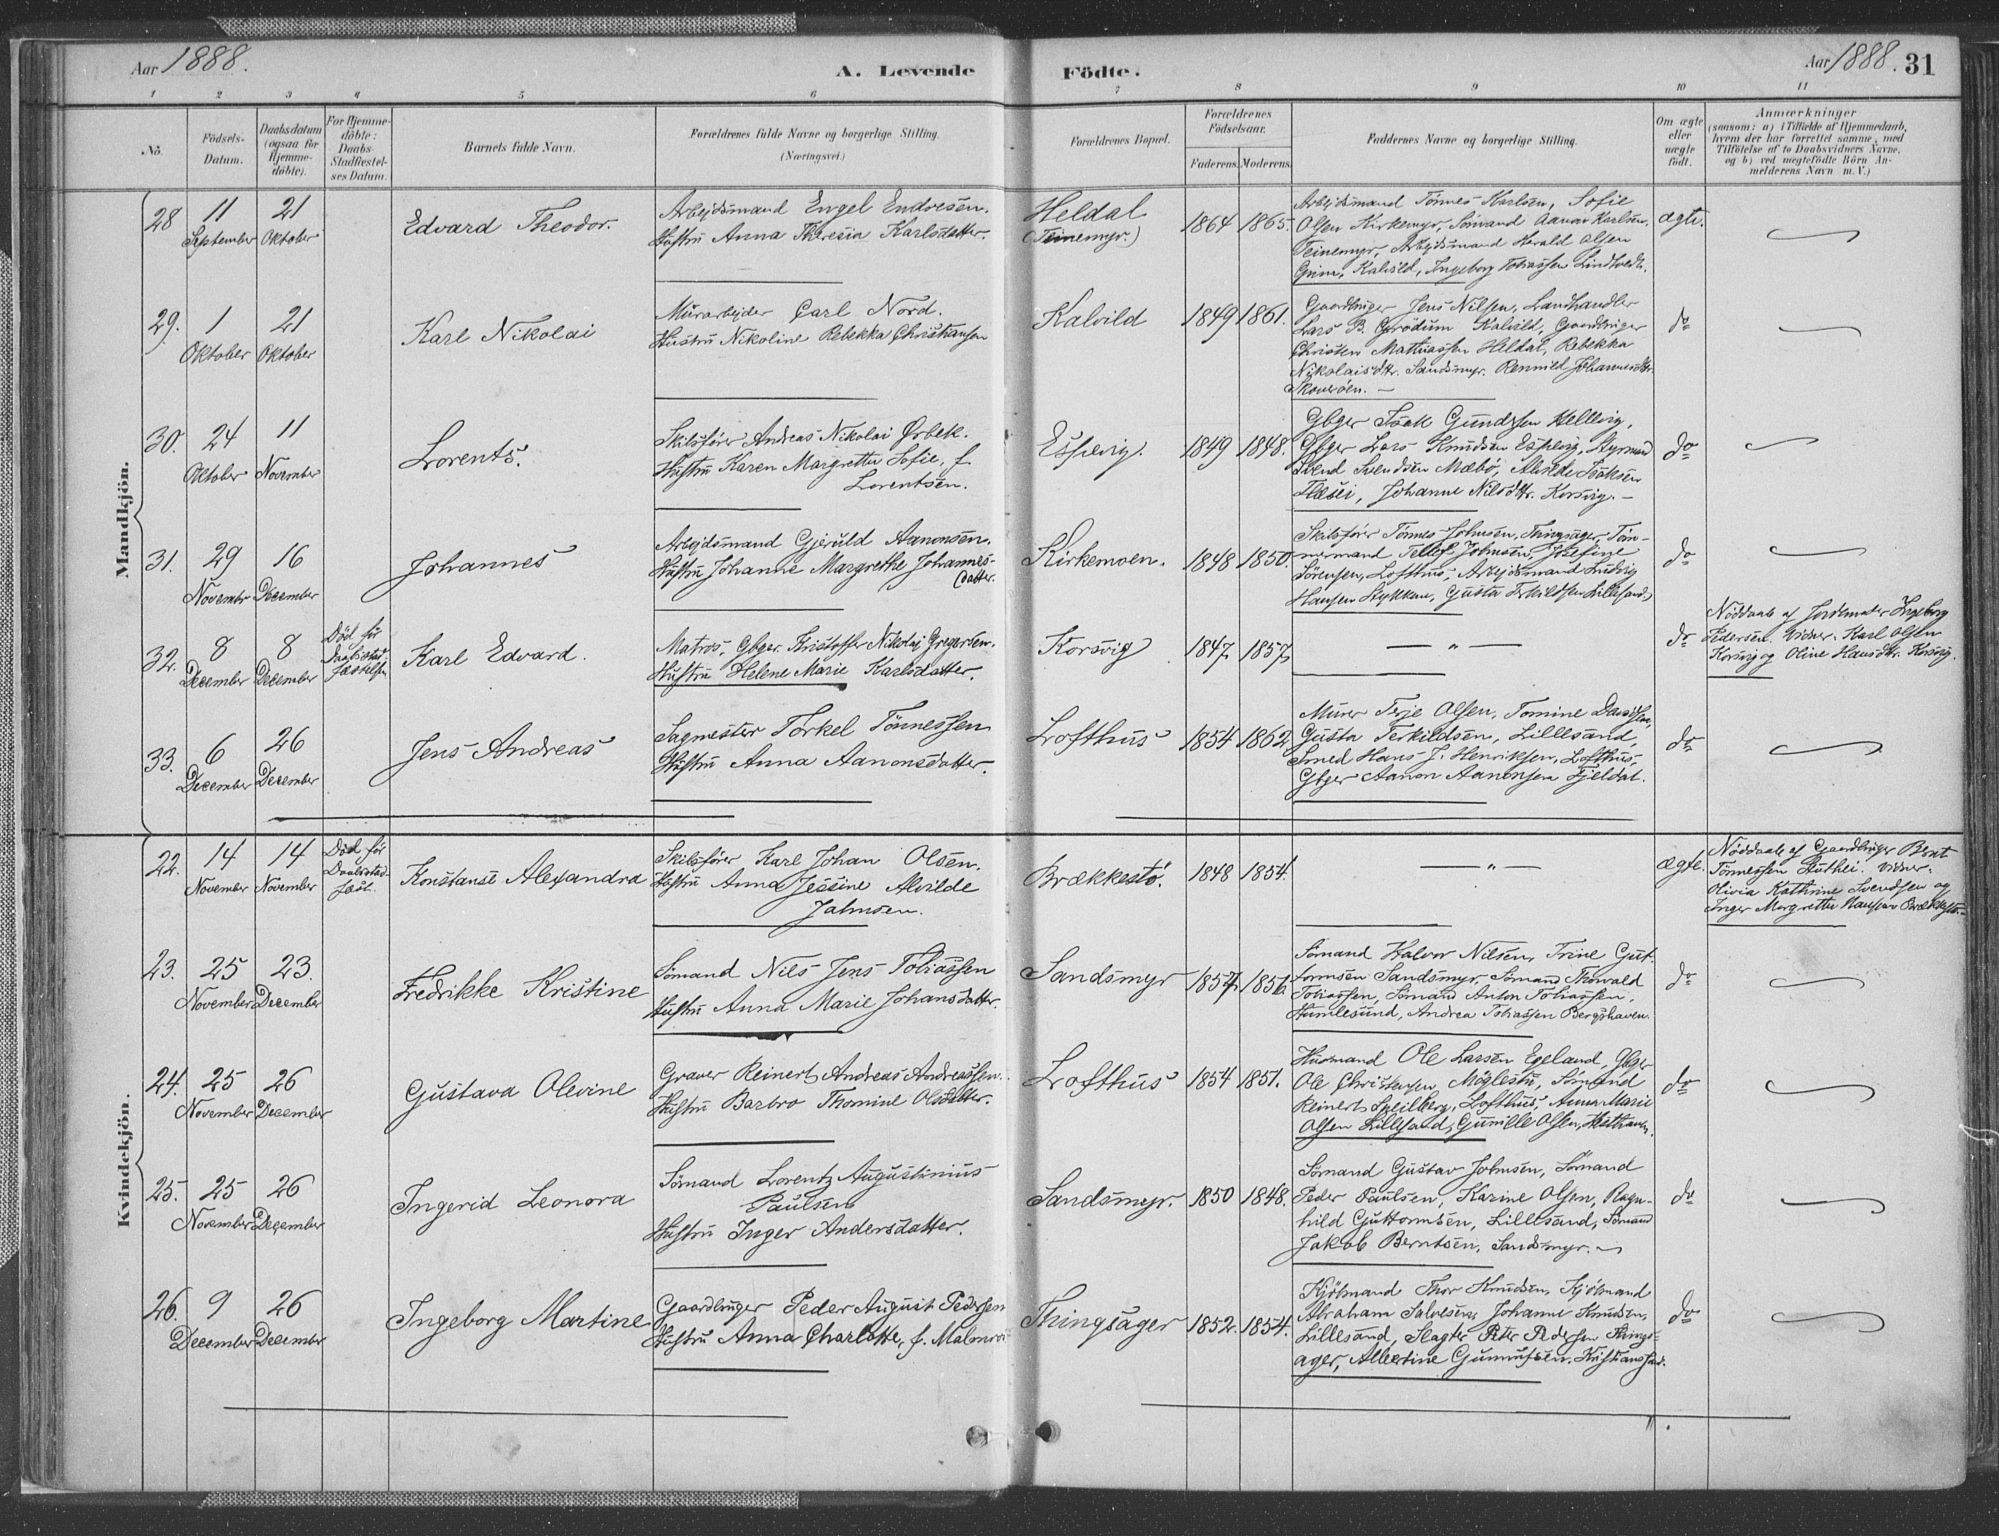 Aar 1888.
A. Levende Födte.
Aar 1888. 31
1 2 3 4 5 6 7 8 9 10 11
No.
Födsels-
Datum.
Daabsdatum
(ogsaa for
Hjemme-
döbte).
For Hjemme-
döbte:
Daabs-
Stadfæstel-
ses Datum.
Barnets fulde Navn.
Forældrenes fulde Navne og borgerlige Stilling.
(Næringsvei.)
Forældrenes Bopæl.
Forældrenes
Födselsaar.
Faderens. Moderens.
Faddernes Navne og borgerlige Stilling.
Om ægte
eller
uægte
født.
Anmærkninger
(saasom: a) i Tilfælde af Hjemmedaab,
hvem der har forrettet samme, med
Tilföielse af to Daabsvidners Navne,
og b) ved uægtefödte Börn An-
melderens Navn m. V.)
Mandkjön.
28 11 September 21 Oktober
Edvard Theodor.
Arbejdsmand Engel Endresen.
Hustru Anna Theresia Karlsdatter.
Heldal
(Teinemyr.)
1864 1865.
Arbejdsmand Tönnes Karlsen, Sofie
Olsen Kirkemyr, Sömand Aanav Karlsen,
Teinemyr, Arbejdsmand Harald Olsen
Grim, Kalvild, Ingeborg Tobiassen Lindtvedt.
ægte.
29. 1 Oktober 21 Oktober
Karl Nikolai
Murarbejder Carl Nord.
Hustru Nikoline Rebekka Christiansen
Kalvild
1849 1861.
Gaardbruger Jens Nilsen, Landhandler
Lars B. Grödum Kalvild, Gaardbruger
Christen Mathiassen Heldal, Rebekka
Nikolaisdtr. Sandsmyr. Renmild Johannesdtr.
Skoveröen. —
do
30. 24 Oktober 11 November
Lorents.
Skibsfører Andreas Nikolai Ørbek.
Hustru Karen Margrethe Sofie, f.
Lorentsen.
Espevig.
1849 1848.
Gbger Isak Gundersen Hellevig,
Gbger Lars Knudsen Espevig, Styrmand
Svend Svendsen Mæbö, Alvilde Isaksen
Flasei, Johanne Nilsdtr. Korsvig. —
do
31. 29 November 16 December
Johannes
Arbejdsmand Gjeruld Aanonsen.
Hustru Johanne Margrethe Johannes-
datter.
Kirkemoen.
1848 1850.
Skibsfører Tönnes Johnsen, Thingsager, Töm-
mermand Tellef Johnsen, Josefine
Sörensen, Lofthus, Arbejdsmand Ludvig
Hansen Stykkene, Gusta Terkildsen Lillesand,
do
32. 8 December 8 December
Död før
Daabsstad-
fæstelsen
Karl Edvard.
Matros, Gbger. Kristoffer Nikolaj Gregersen.
Hustru Helene Marie Karlsdatter.
Korsvig
1847 1857
— " —
do
Nöddaab af Jordemoder Ingeborg
Pedersen. Vidner. Karl Olsen
Korsvig og Oline Hansdtr. Korsvig.
33. 6 December 26 December
Jens Andreas
Sagmester Törkel Tönnessen
Hustru Anna Aanonsdatter.
Lofthus
1854 1862
Murer Terje Olsen, Tomine Davidsen,
Gusta Terkildsen, Lillesand,
Smed Hans J. Henriksen, Lofthus,
Gbger Aanon Aanonsen Fjeldal.
do
Kvindekjön.
22. 14 November 14 November
Död før
Daabsstad-
fæst.
Konstanse Alexandra
Skibsfører Karl Johan Olsen.
Hustru Anna Jessine Alvilde
Johnsen.
Brækkestö.
1848 1854.
— " —
ægte.
Nöddaab af Gaardbruger Bent
Tönnessen Studhei. Vidner:
Olivia Kathrine Svendsen og
Inger Margrethe Hansen Brækkestö. —
23. 25 November 23. December
Fredrikke Kristine
Sömand Nils Jens Tobiassen
Hustru Anna Marie Johansdatter.
Sandsmyr
1857 1856
Sömand Halvor Nilsen, Trine Gut-
tormsen Sandsmyr, Sömand Thorvald
Tobiassen, Sömand Anton Tobiassen,
Humlesund, Andrea Tobiassen Bergshaven.
do
24. 25 November 26 December
Gustava Olevine
Graver Reinert Andreas Andreassen.
Hustru Barbro Thomine Olsdatter.
Lofthus
1854 1851.
Husmand Ole Larsen Egeland, Gbger
Ole Christensen, Möglestu, Sömand
Reinert Speilberg, Lofthus, Anna Marie
Olsen Lillesand, Gunille Olsen, Hesthaven.
do
25. 25 November 26 December
Ingerid Leonora
Sömand Lorentz Augustinius
Paulsen
Hustru Inger Andersdatter.
Sandsmyr.
1850 1848.
Sömand Gustav Johnsen, Sömand
Peder Paulsen, Karine Olsen, Ragn-
hild Guttormsen, Lillesand, Sömand
Jakob Berntsen, Sandsmyr.
do
26. 9 December 26 December
Ingeborg Martine
Gaardbruger Peder August Pedersen
Hustru Anna Charlotte, f.
Thingsager
1852. 1854.
Kjöbmand Thor Knudsen, Kjöbmand
Abraham Salvesen, Johanne Knudsen,
Lillesand, Slagter Peter Pedersen Things-
ager, Albertine Gunnufsen, Kristianssand.
do